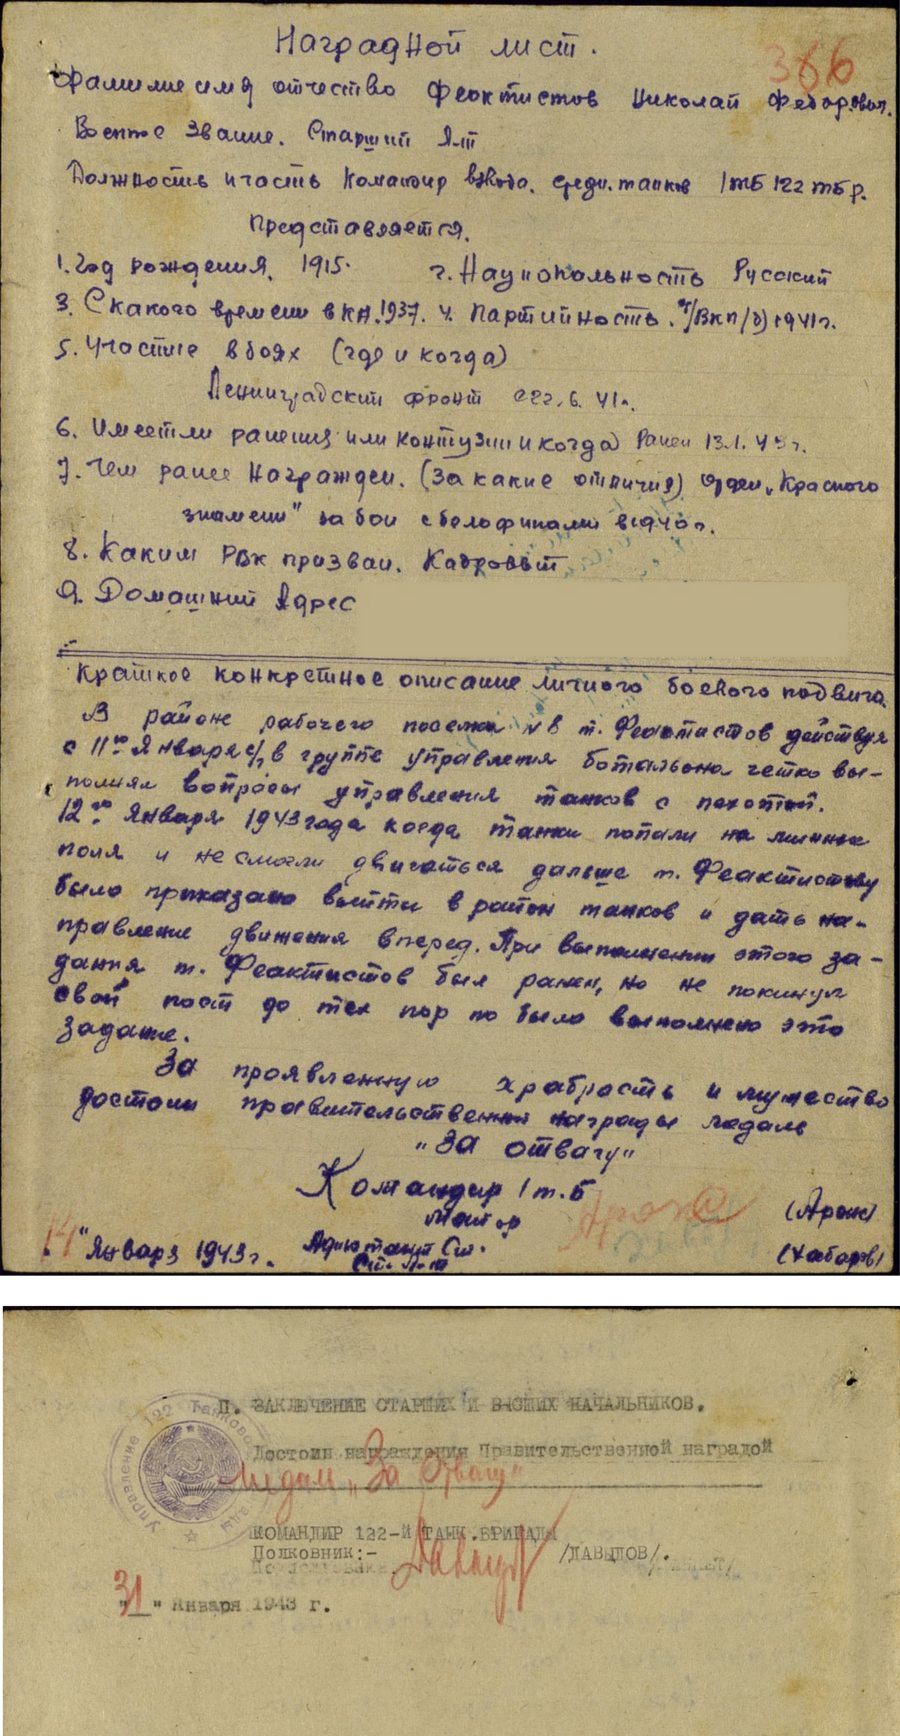 Наградной лист.
386
Фамилие имя отчество Феоктистов Николай Федорович.
Военное Звание. Старший л-т
Должность и часть Командир взвода. средн. танков 1 тб 122 тбр.
Представляется.
1. Год рождения. 1915. 2. Национольность Русский
3. С какого времени в КА. 1937. 4. Партийность. ВКП/б) 1941г.
5. Участие в боях (где и когда)
Ленинградский фронт с 22.6.41г.
6. Имеет ли ранения или контузии и когда Ранен 13.1.43г.
7. Чем ранее Награжден. (За какие отличия) Орден „Красного
знамени" за бои с белофинами в 1940г.
8. Каким РВК призван. Кадровый
9. Домашний Адрес
Краткое конкретное описание личного боевого подвига.
В районе рабочего поселка №8 т. Феоктистов действуя
с 11го Января с/г в группе управления ботальона четко вы-
полнял вопросы управления танков с пехотой.
12го Января 1943 года когда танки попали на минные
поля и не смогли двигаться дальше т. Феактистову
было приказано выйти в район танков и дать на-
правление движения вперед. При выполнении этого за-
дания т. Феактистов был ранен, но не покинул
свой пост до тех пор по было выполнено это
задание.
За проявленную храбрость и мужество
достоин правительственной награды медаль
„За отвагу"
Командир 1 т.б
Майор (Аронс)
14 "Января 1943г. Адютант Ст.
Ст. л-т (Хабаров)
П. ЗАКЛЮЧЕНИЕ СТАРШИХ И ВЫСШИХ НАЧАЛЬНИКОВ.
Управление 122 Танковой
Достоин награждения Правительственной наградой
Медали „За Отвагу"
КОМАНДИР 122-Й ТАНК.БРИГАДЫ
Полковник:- /ДАВЫДОВ/.
"31" Января 1943 г.